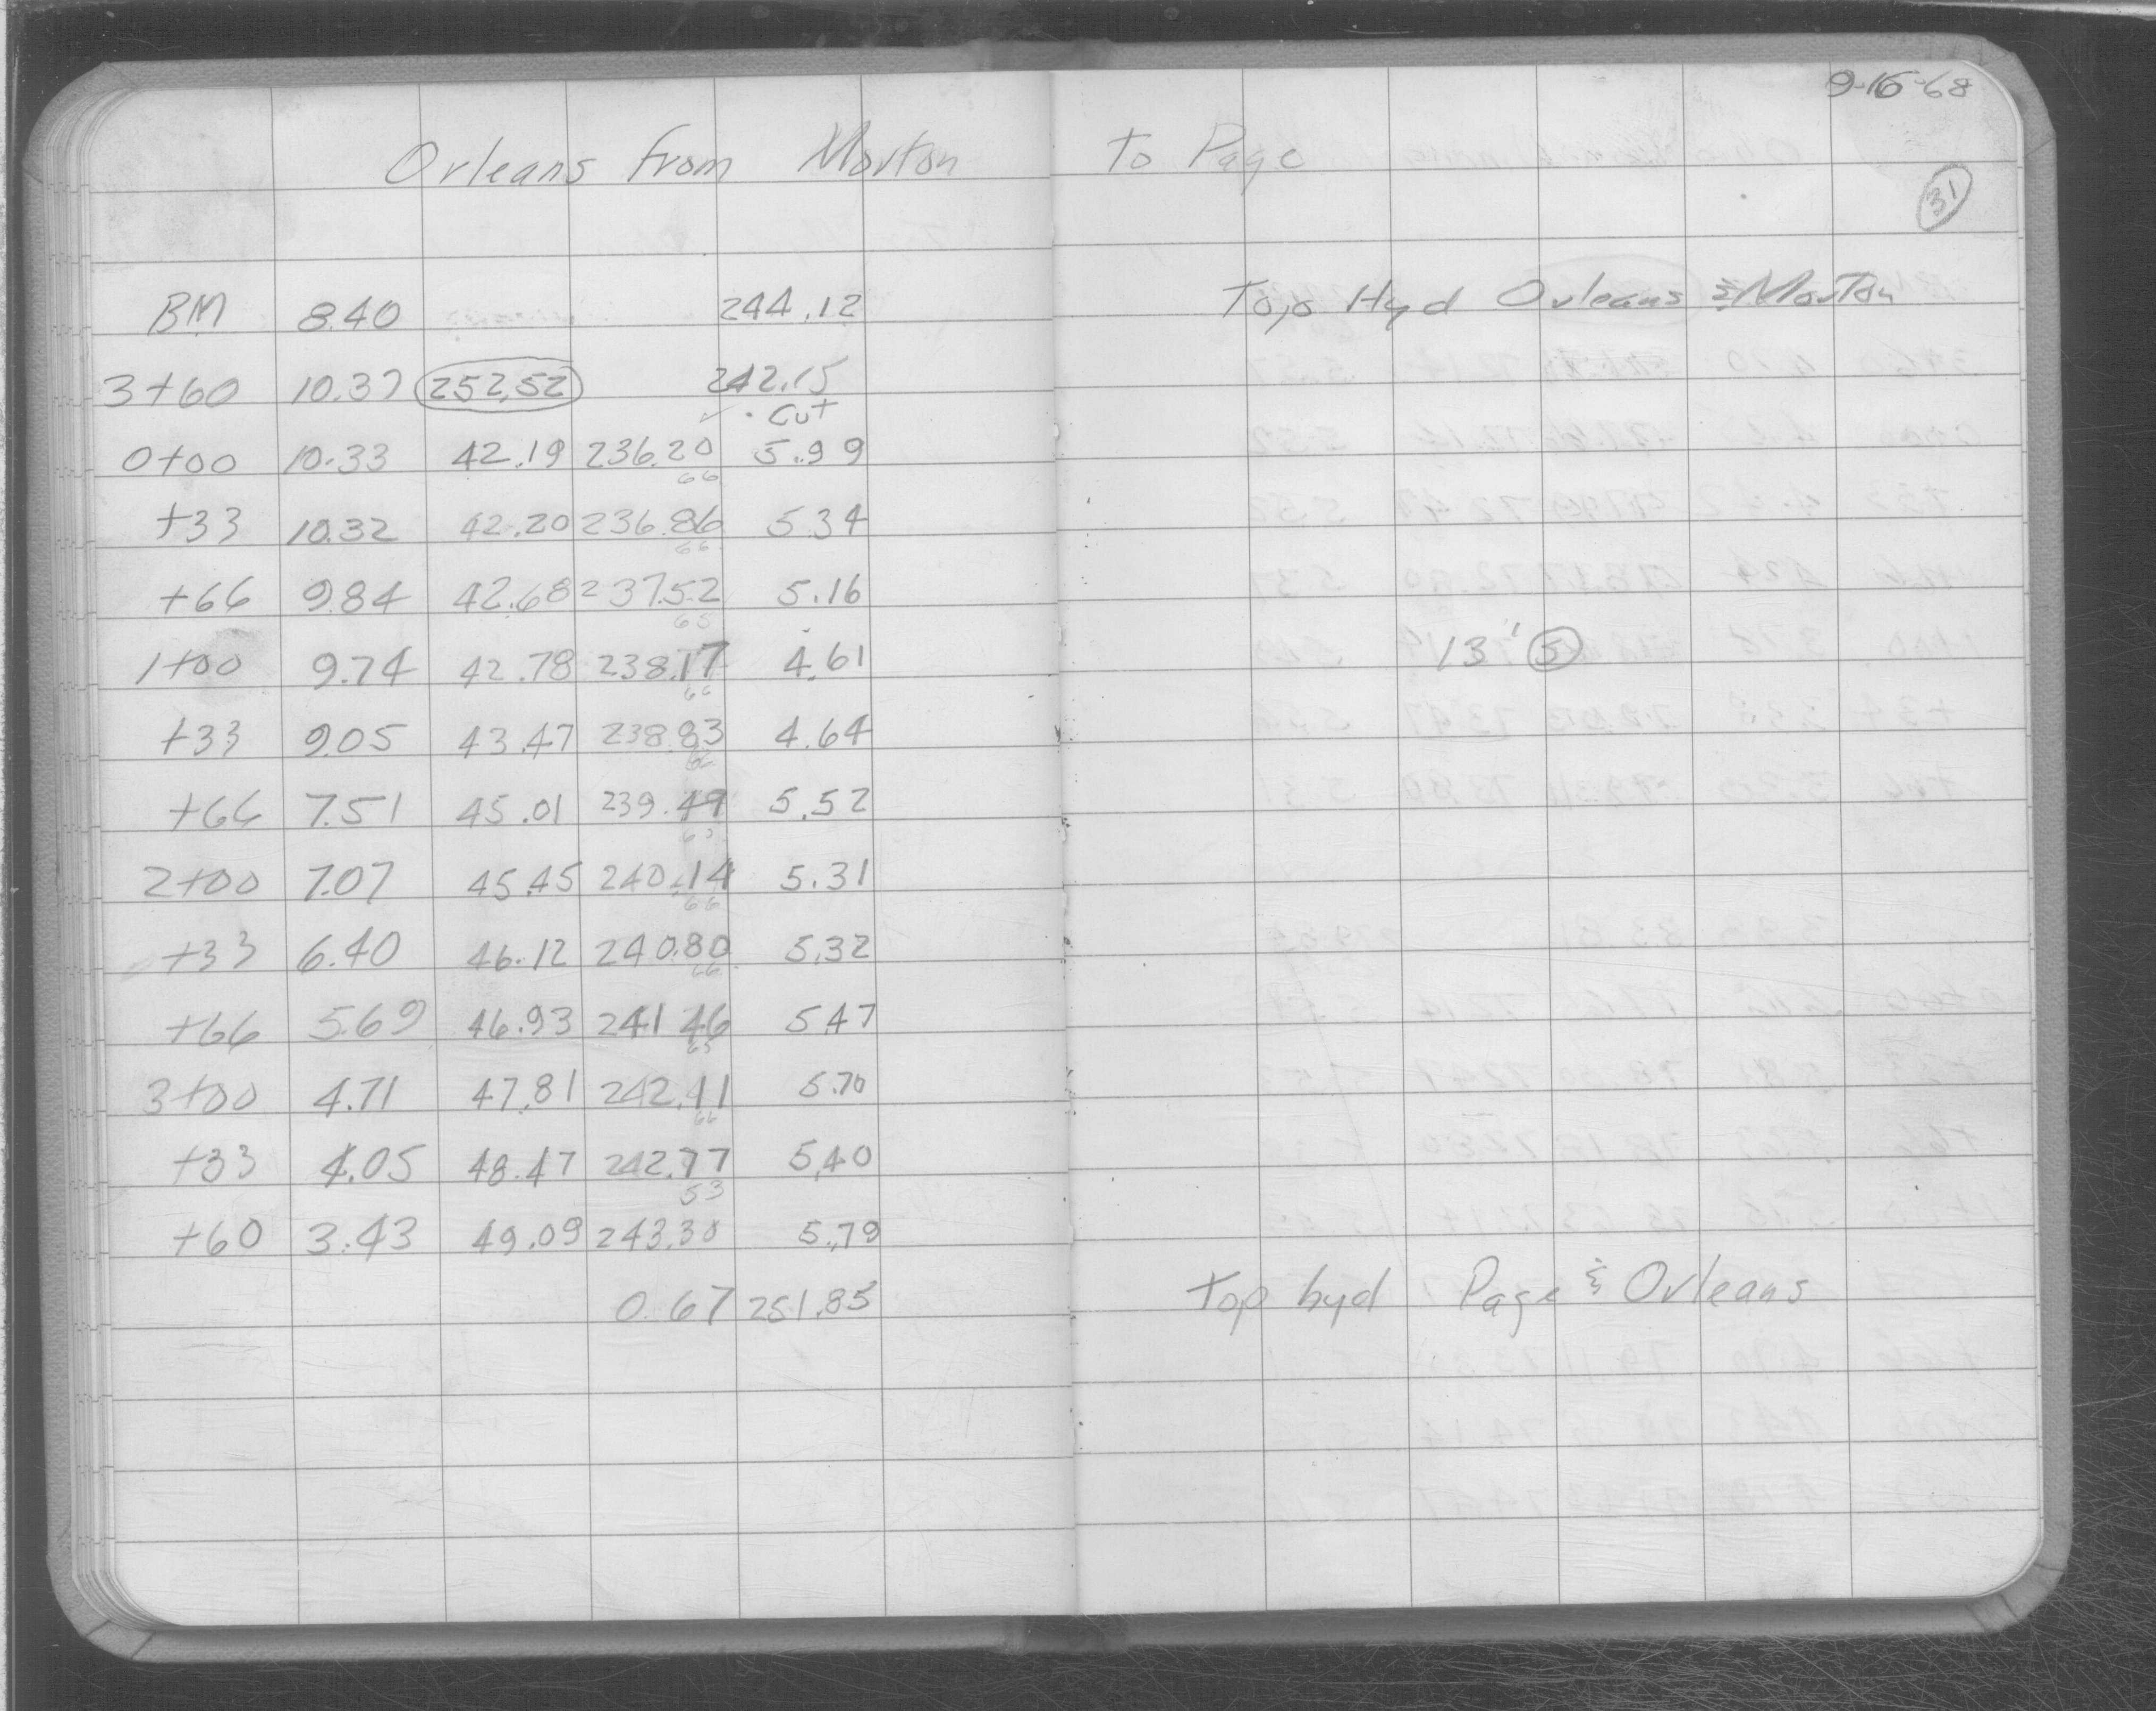 9-16-68
Orleans from Morton To Page
31
BM 8.40 244.12 Top Hyd Orleans & Morton
3+60 10.37 252.52 242.15
Cut
0+00 10.33 42.19 236.20 5.99
66
+33 10.32 42.20 236.86 5.34
66
+66 9.84 42.68 237.52 5.16
65
1+00 9.74 42.78 238.17 4.61 13' S
66
+33 9.05 43.47 238.83 4.64
66
+66 7.51 45.01 239.49 5.52
65
2+00 7.07 45.45 240.14 5.31
66
+33 6.40 46.12 240.80 5.32
66
+66 5.69 46.93 241 46 5.47
65
3+00 4.71 47.81 242.11 5.70
66
+33 4.05 48.47 242.77 5.40
53
+60 3.43 49.09 243.30 5.79
0.67 251.85 top hyd Page & Orleans